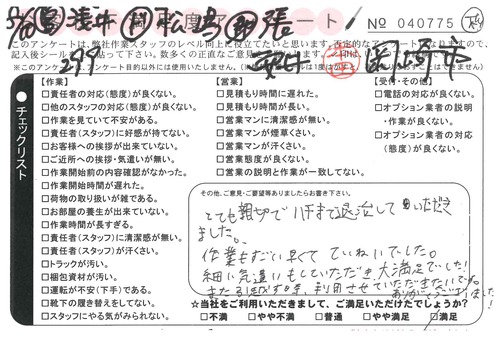 満足度アンケート
No 040775
このアンケートは、弊社作業スタッフのレベル向上に役立てたいと思います。否定的なアンケートになりますので、
記入後シールを貼って下さい。数多くの正直なご意見をお待ちしております。
※このアンケートは、アンケート目的以外には一切使用いたしません。
299
チェックリスト
【作業】
□責任者の対応(態度)が良くない。
□他のスタッフの対応(態度)が良くない。
□作業を見ていて不安がある。
□責任者(スタッフ)に好感が持てない。
□お客様への挨拶が出来ていない。
□ご近所への挨拶・気遣いが無い。
□作業開始前の内容確認がなかった。
□作業開始時間が遅れた。
□荷物の取り扱いが雑である。
□お部屋の養生が出来ていない。
□作業時間が長すぎる。
□責任者(スタッフ)に清潔感が無い。
□責任者(スタッフ)が汗くさい。
□トラックが汚い。
□梱包資材が汚い。
□運転が不安(下手)である。
□靴下の履き替えをしてない。
□スタッフにやる気がみられない。
【営業】
□見積もり時間に遅れた。
□見積もり時間が長い。
□営業マンに清潔感が無い。
□営業マンが煙草くさい。
□営業マンが汗くさい。
□営業態度が良くない。
□営業の説明と作業が一致してない。
【受付・その他】
□電話の対応が良くない。
□オプション業者の説明
・作業が良くない。
□オプション業者の対応
(態度)が良くない。
その他、ご意見・ご要望等ありましたらお書き下さい。
とても親切でハチまで退治していただき
ました。
作業もすごい早くてていねいでした。
細い気遣いもしていただき、大満足でした!
またの引越す時、利用させていただきたいです。
ありがとうございました!
☆当社をご利用いただきまして、ご満足いただけたでしょうか?
□不満 □やや不満 □普通 □やや満足 □満足